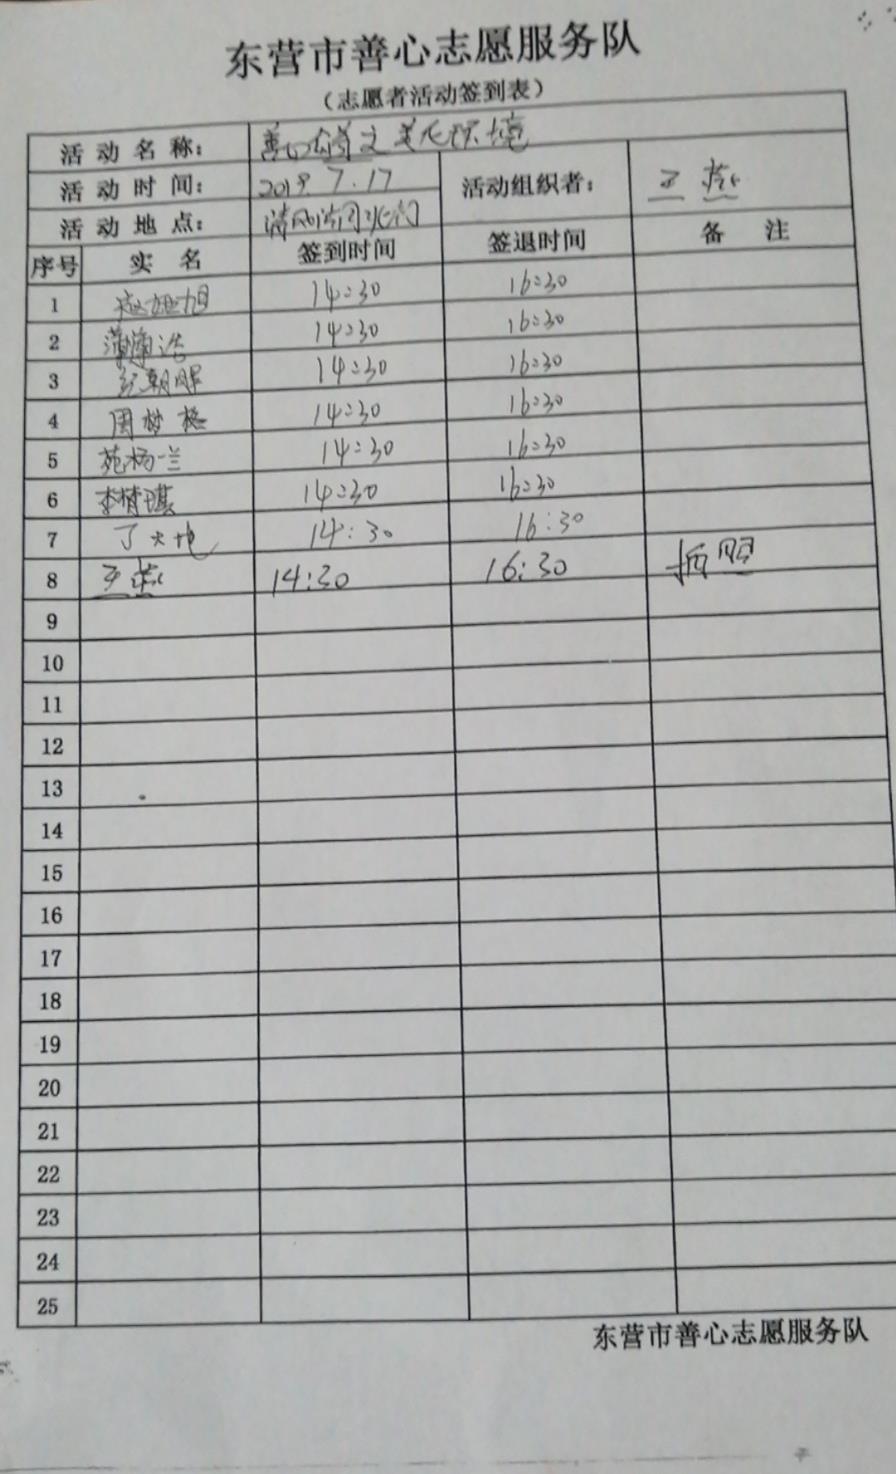 东营市善心志愿服务队
（志愿者活动签到表）
活动名称： 美化环境
活动时间： 2019.7.17 活动组织者： 王
活动地点：
序号 实名 签到时间 签退时间 备注
1 14:30 16:30
2 14:30 16:30
3 14:30 16:30
4 周梦 14:30 16:30
5 苑杨兰 14:30 16:30
6 李倩琪 14:30 16:30
7 丁天地 14:30 16:30
8 王 14:30 16:30 拍照
9
10
11
12
13
14
15
16
17
18
19
20
21
22
23
24
25
东营市善心志愿服务队